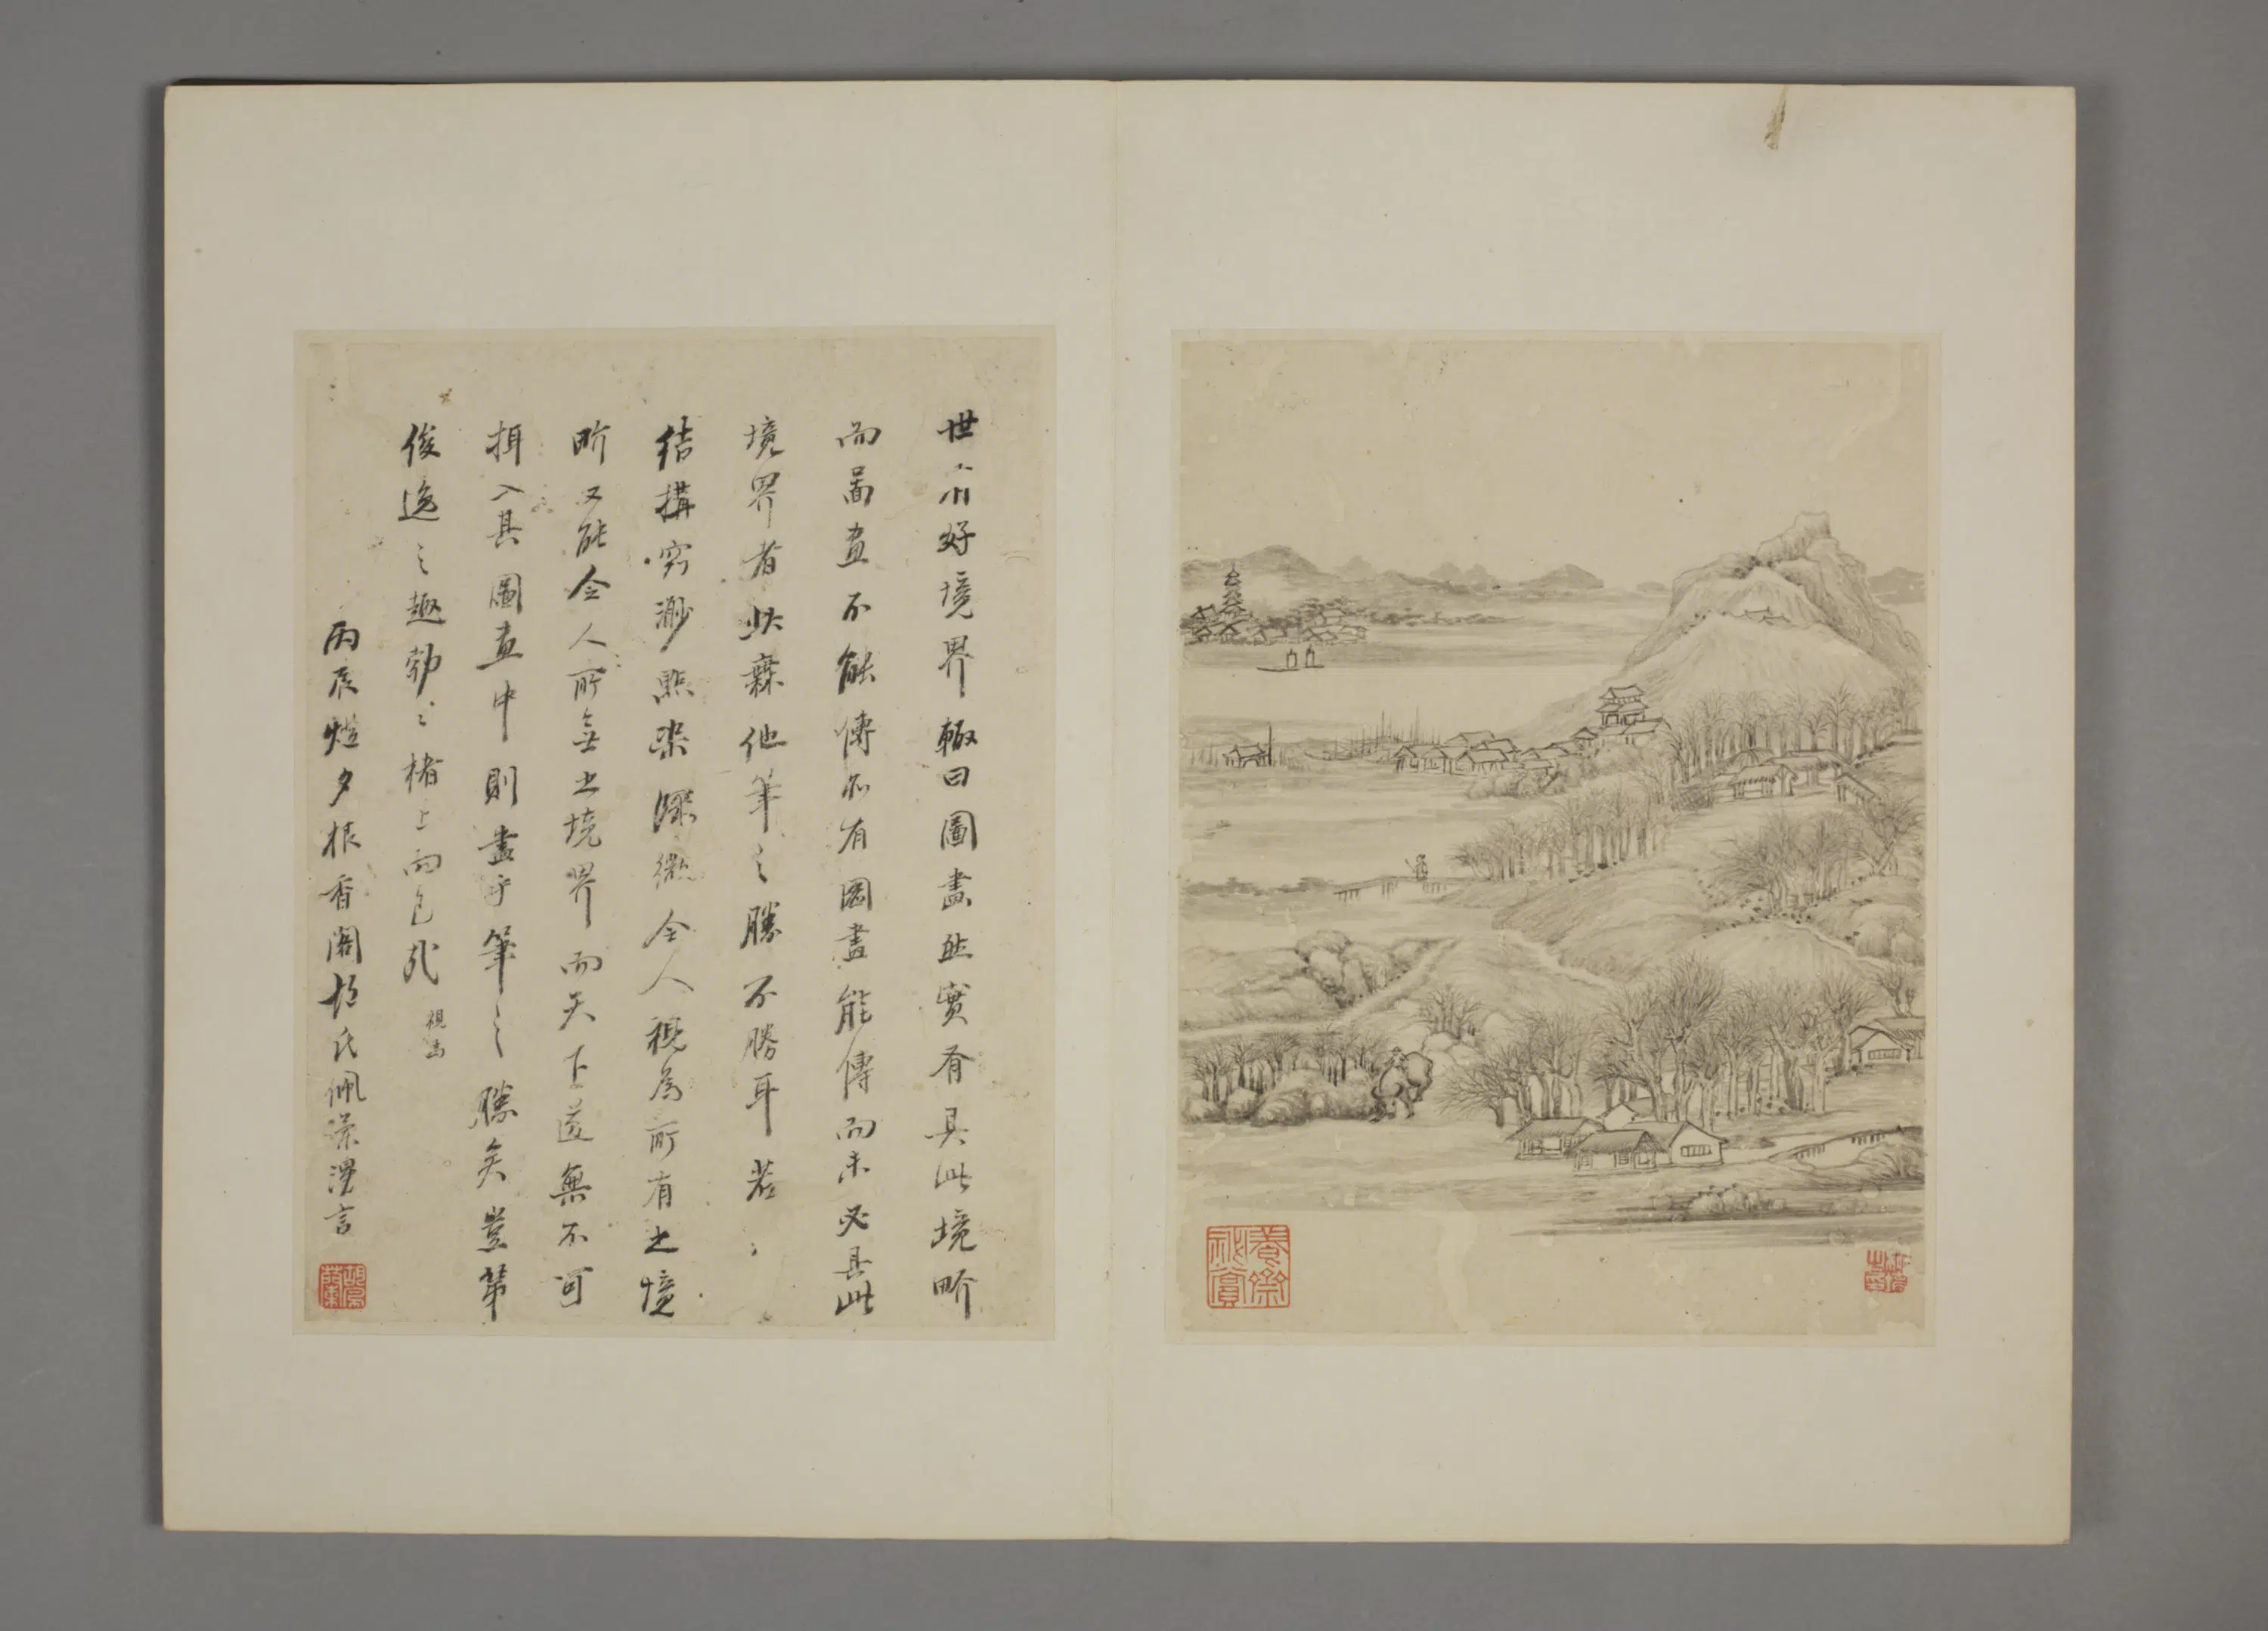 世有好境界輙曰圖畫然實有具此境界
而圖畫不能傳亦有圖畫能傳而未必具此
境界者此森他筆之勝不勝耳若
結搆窈渺點染深微令人視為所有之境
界又能令人所無之境界而天下遂無不可
揖入其圖畫中則畫乎筆之勝矣豈第
俊逸之趣勃之楮上而已哉
視為
丙辰燈夕振香閣胡氏佩蘭漫言